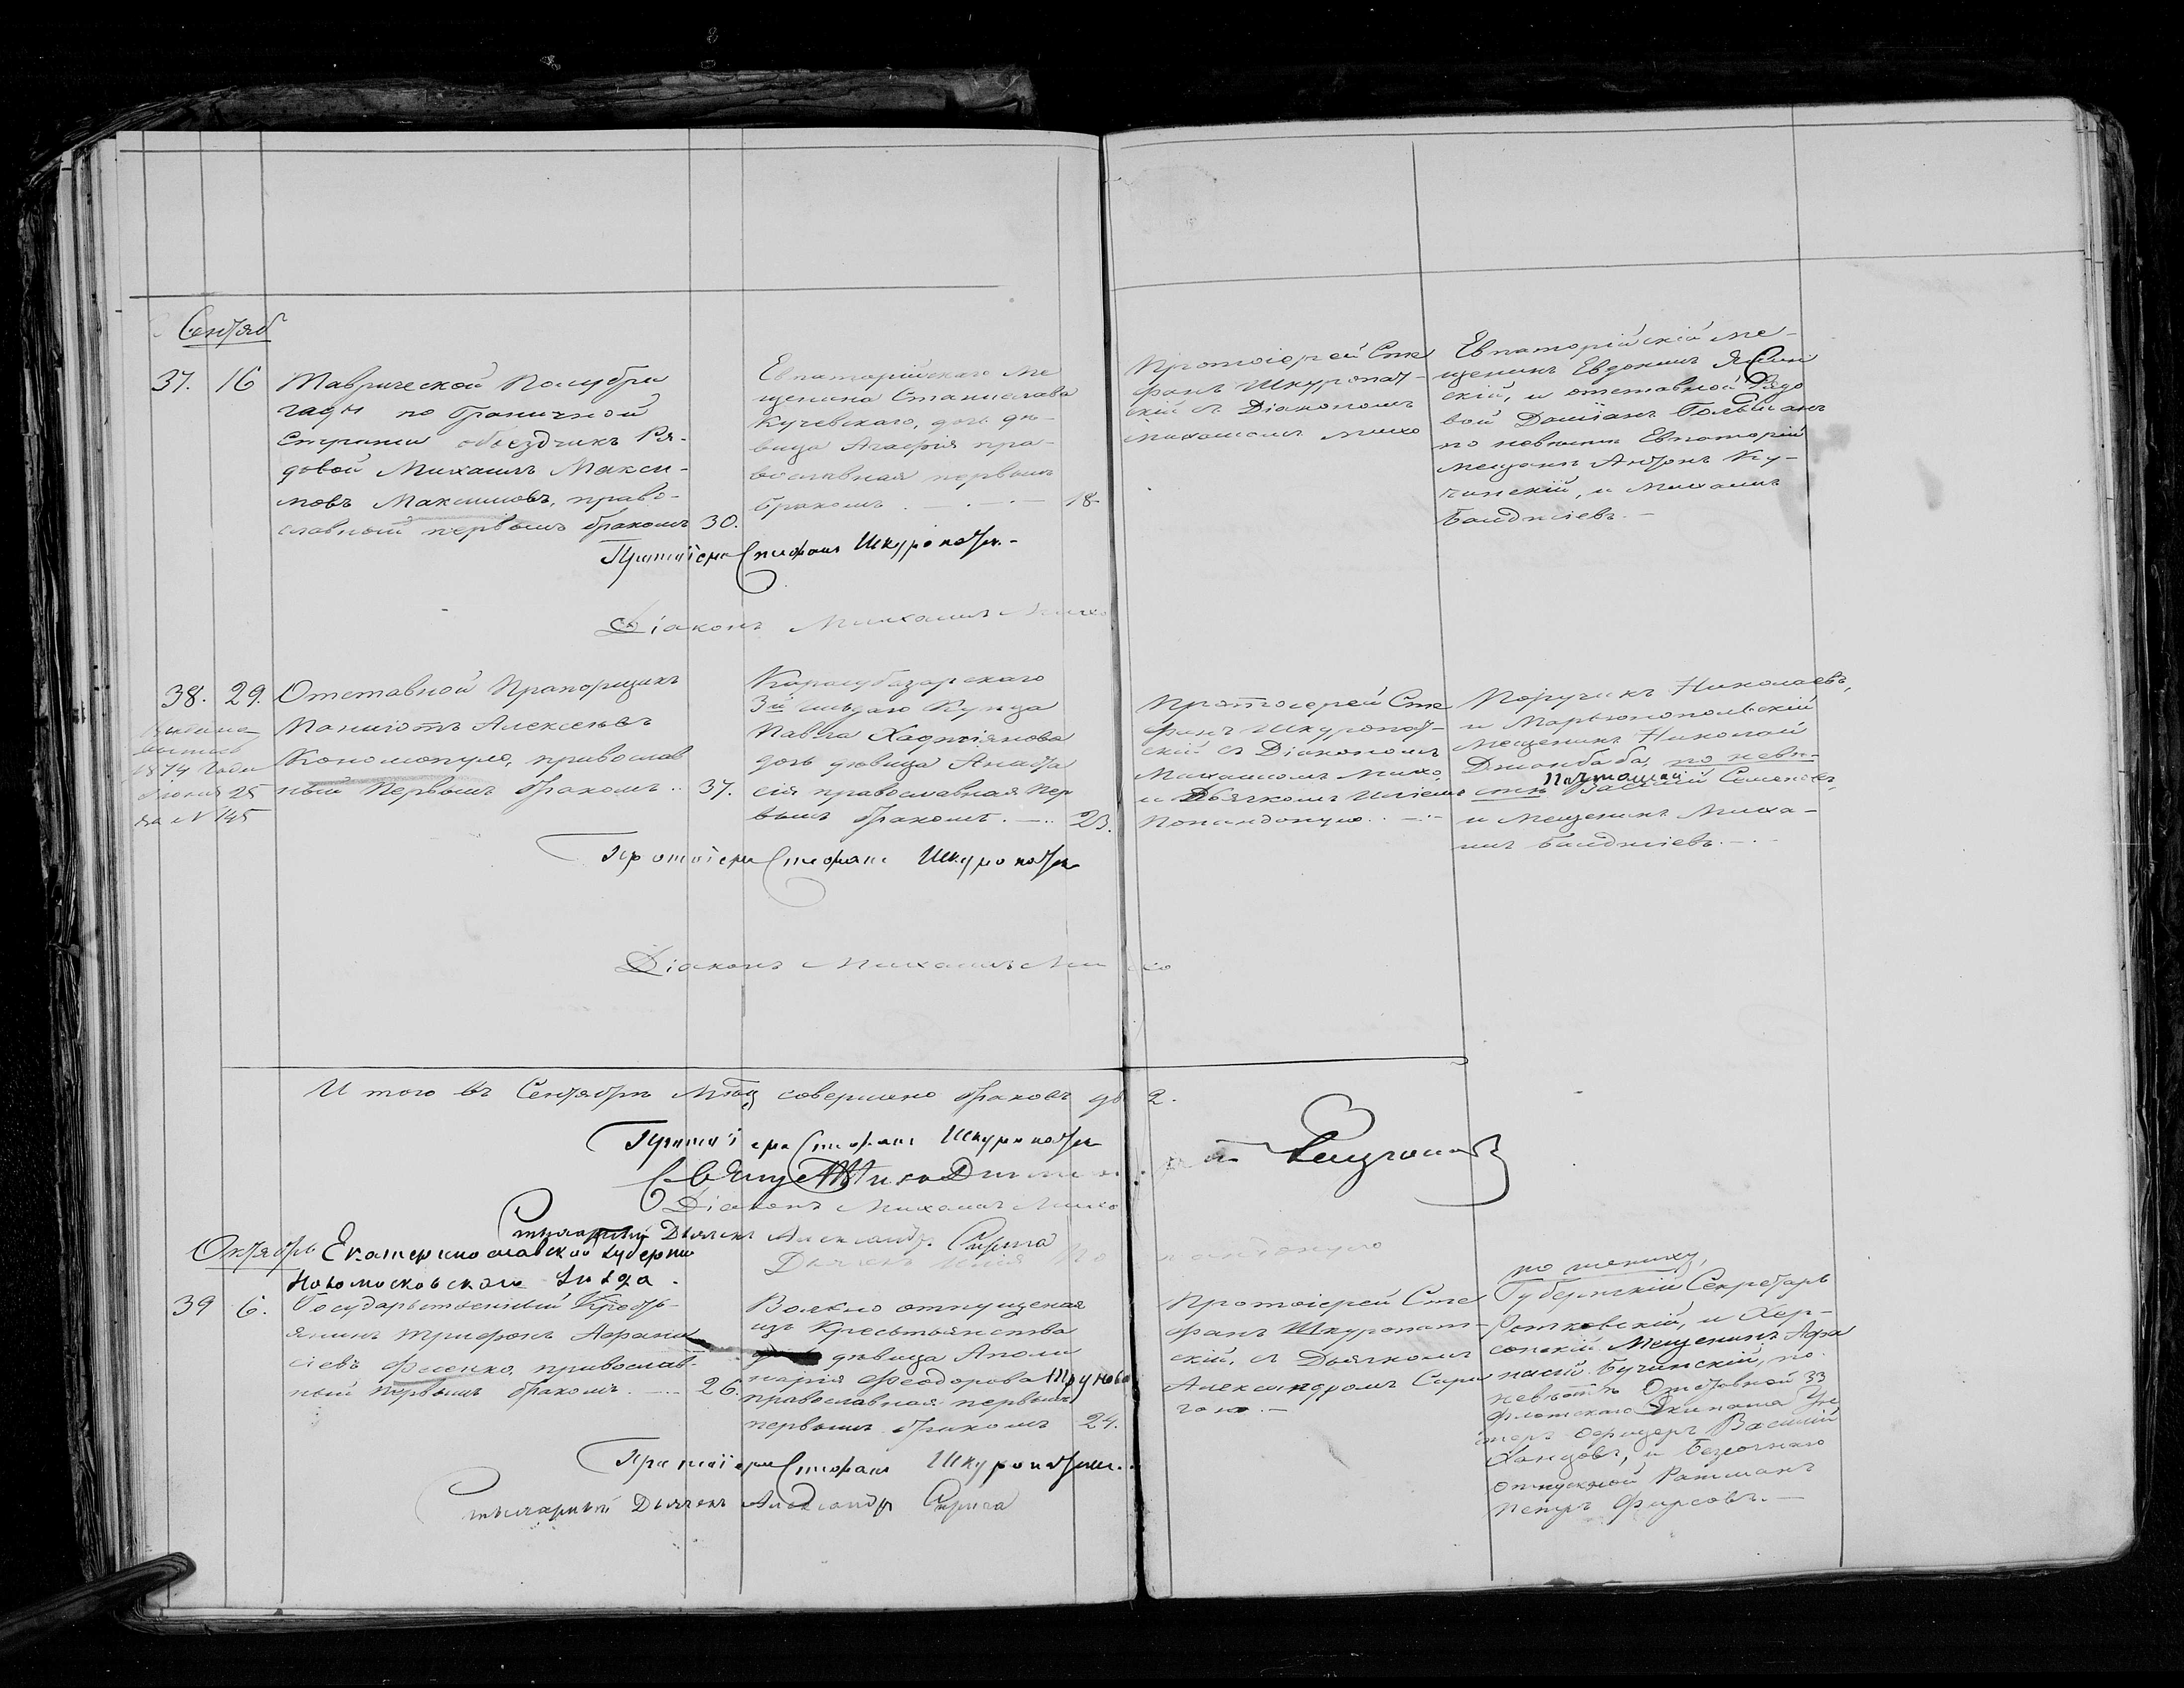 Сентяб
37. 16
Таврической Полубри
гады по Граничной
Стражи объездчикъ Ря-
довой Михаилъ Макси-
мовъ Максимовъ, право-
славный первымъ бракомъ 30.
Евпаторійскаго ме
щанина Станислава
Кучевскаго, дочь дѣ-
вица Агафія пра-
вославная первымъ
бракомъ 18.
Протоіерей Сте
фанъ Шкуропат-
скій съ Діакономъ
Михаиломъ Михо
Евпаторійскій ме-
щанинъ Евдокимъ
скій, и отставной Рядо
вой Даміанъ
по невѣстѣ Евпаторій
мещане Антонъ Ку-
чинскій, и Михаилъ
Баиджіевъ. —
Протоіерей Стефанъ Шкуропатск.
Діаконъ Михаилъ Михо
38. 29.
1874 года
Іюня 25
за № 145
Отставной Прапорщикъ
Панаіотъ Алексѣевъ
Кономопуло, православ
ный Первымъ бракомъ .. 37.
Карасубазарскаго
3й гильдіи Купца
Павла Хаджіянова
дочь дѣвица Анаста
сія православная пер
вымъ бракомъ. —.. 23.
Протоіерей Сте
фанъ Шкуропат-
скій съ Діакономъ
Михаиломъ Михо,
и Дьячкомъ Иліею
Попандопуло. —
Поручикъ Николаевъ,
и Марьюпольскій
Мещанинъ Николай
Джанбаба, по невѣ-
стѣ Василій Семеновъ,
и Мещанинъ Миха-
илъ Баиджіевъ. —
Протоіерей Стефанъ Шкуропатск
Діаконъ Михаилъ Михо
И того въ Сентябрѣ Мѣсц совершено браковъ дв 2.
Протоіерей Стефанъ Шкуропатск
Діаконъ Михаилъ Михо
Дьячекъ Александр. Сирига
Дьячекъ Илія Попандопуло
Октябрь
Екатеринославской губерніи
Новомосковскаго Уѣзда.
39 6.
Государственный Кресть-
янинъ Трифонъ Афана
сіевъ Фесенко, православ-
ный первымъ бракомъ. — .. 26.
Вольно отпущеная
изъ Крестьянства
дѣвица Аполи
нарія Феодорова Трунова
православная первымъ
первымъ бракомъ 24.
Протоіерей Сте
фанъ Шкуропат-
скій, съ Дьячкомъ
Александромъ Сири
гою. —
по жениху,
Губернскій Секретарь
и Хер-
сонскій Мещанинъ Афа
насій Бучинскій, по
невѣстѣ Отставной 33
флотскаго Экипажа Ун
теръ офицеръ Василій
и Безсрочно
отпускной
Петръ Фирсовъ. —
Протоіерей Стефанъ Шкуропатскій.
Дьячекъ Александр Сирига